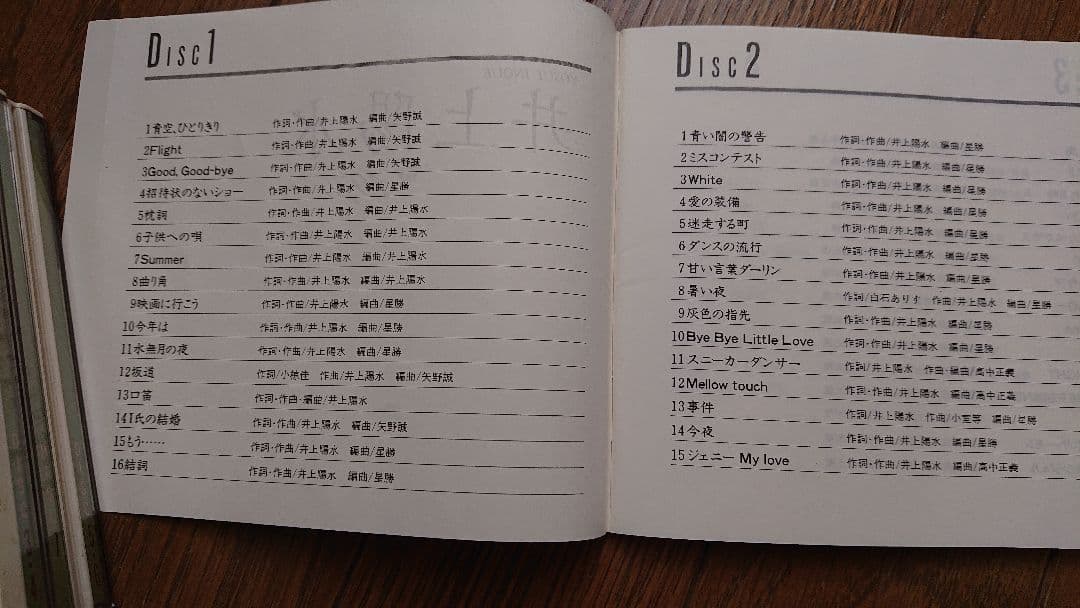 Disc1
1青空、ひとりきり 作詞・作曲/井上陽水 編曲/矢野誠
2Flight 作詞・作曲/井上陽水 編曲/矢野誠
3Good, Good-bye 作詞・作曲/井上陽水 編曲/矢野誠
4招待状のないショー 作詞・作曲/井上陽水 編曲/星勝
5枕詞 作詞・作曲/井上陽水 編曲/井上陽水
6子供への唄 作詞・作曲/井上陽水 編曲/井上陽水
7Summer 作詞・作曲/井上陽水 編曲/井上陽水
8曲り角 作詞・作曲/井上陽水 編曲/井上陽水
9映画に行こう 作詞・作曲/井上陽水 編曲/星勝
10今年は 作詞・作曲/井上陽水 編曲/星勝
11水無月の夜 作詞・作曲/井上陽水 編曲/星勝
12坂道 作詞/小椋佳 作曲/井上陽水 編曲/矢野誠
13口笛 作詞・作曲・編曲/井上陽水
14I氏の結婚 作詞・作曲/井上陽水 編曲/矢野誠
15もう…… 作詞・作曲/井上陽水 編曲/星勝
16結詞 作詞・作曲/井上陽水 編曲/星勝
Disc2
1青い闇の警告 作詞・作曲/井上陽水 編曲/星勝
2ミスコンテスト 作詞・作曲/井上陽水 編曲/星勝
3White 作詞・作曲/井上陽水 編曲/星勝
4愛の装備 作詞・作曲/井上陽水 編曲/星勝
5迷走する町 作詞・作曲/井上陽水 編曲/星勝
6ダンスの流行 作詞・作曲/井上陽水 編曲/星勝
7甘い言葉ダーリン 作詞・作曲/井上陽水 編曲/星勝
8暑い夜 作詞/白石ありす 作曲/井上陽水 編曲/星勝
9灰色の指先 作詞・作曲/井上陽水 編曲/星勝
10Bye Bye Little Love 作詞・作曲/井上陽水 編曲/星勝
11スニーカーダンサー 作詞/井上陽水 作曲・編曲/高中正義
12Mellow touch 作詞・作曲/井上陽水 編曲/高中正義
13事件 作詞/井上陽水 作曲/小室等 編曲/星勝
14今夜 作詞・作曲/井上陽水 編曲/星勝
15ジェニー My love 作詞・作曲/井上陽水 編曲/高中正義